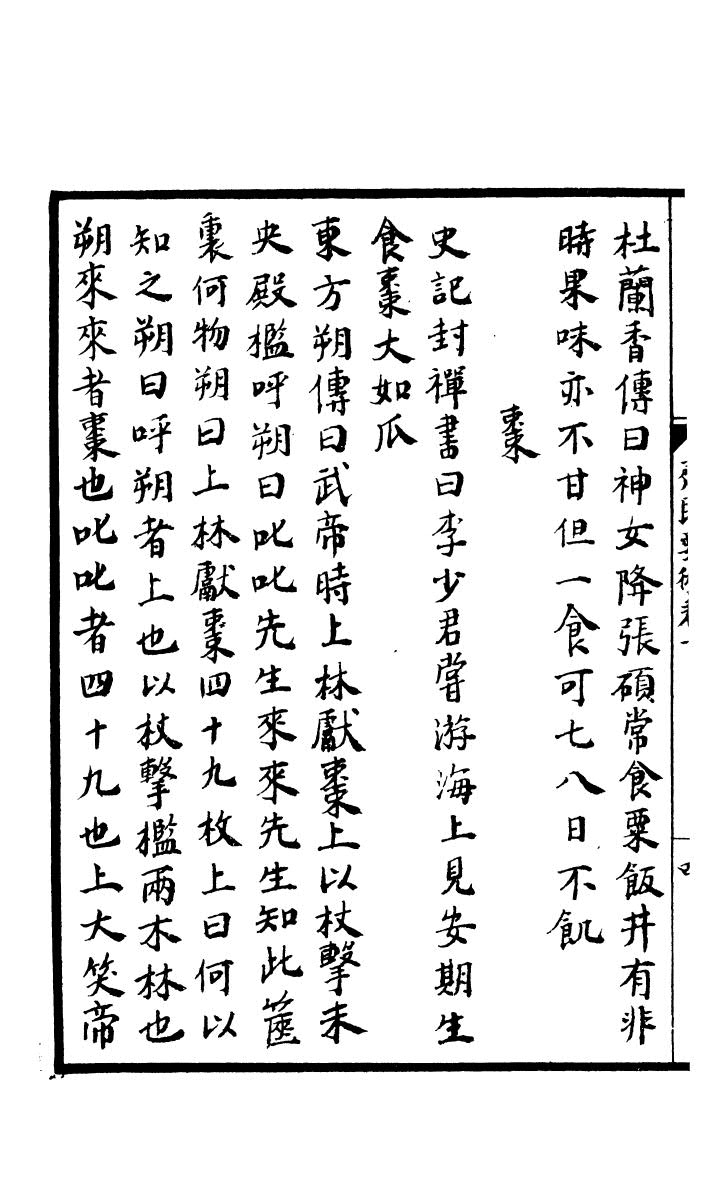 杜蘭香傳曰神女降張碩常食粟飯井有非
時果味亦不甘但一食可七八日不飢
棗
史記封禪書曰李少君嘗游海上見安期生
食棗大如瓜
東方朔傳曰武帝時上林獻棗上以杖擊未
央殿檻呼朔曰叱叱先生來來先生知此篋
裏何物朔曰上林獻棗四十九枚上曰何以
知之朔曰呼朔者上也以杖擊檻兩木林也
朔來來者棗也叱叱者四十九也上大笑帝